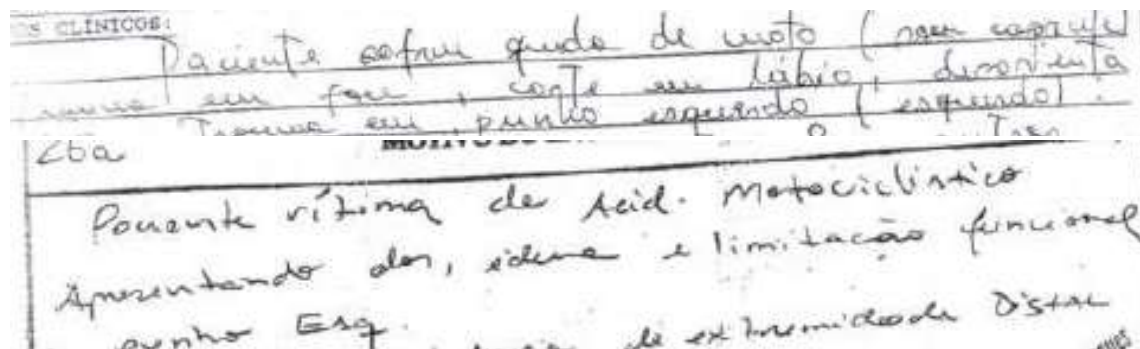 OS CLÍNICOS:
Paciente sofreu queda de moto (sem capacete
trauma em face, corte em lábio, desorienta
Trauma em punho esquerdo (esquerdo).
Cba
Paciente vítima de Acid. Motociclistico
Apresentando dor, edema e limitação funcional
punho Esq.
de extremidade Distal